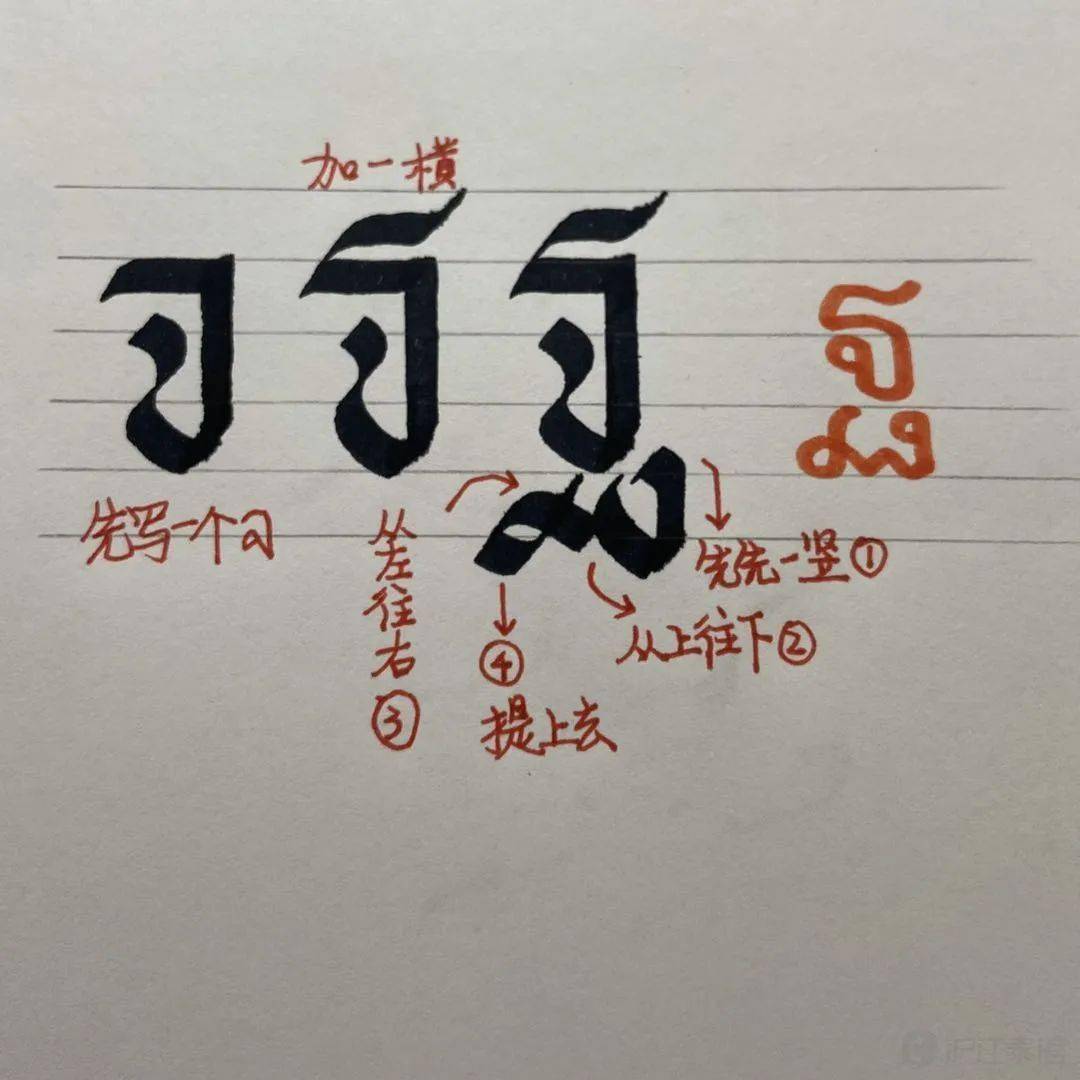 加一横
จ ฐ ฐ
先写一个จ
从左往右③
④
提上去
先先一竖①
从上往下②
沪江泰语